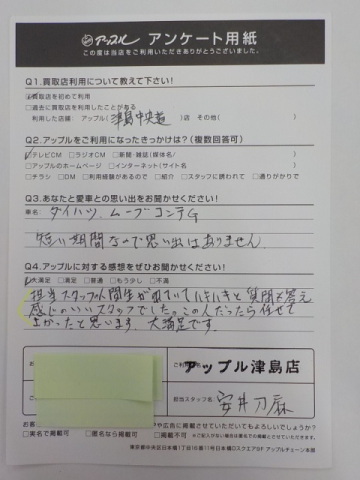 アップル アンケート用紙
この度は当店をご利用いただきありがとうございました。
Q1.買取店利用について教えて下さい!
買取店を初めて利用
□過去に買取店を利用したことがある
利用した店舗 アップル( 津島中央 )店 その他( )
Q2.アップルをご利用になったきっかけは?(複数回答可)
テレビCM □ラジオCM □新聞・雑誌(媒体名/ )
□アップルのホームページ □インターネット(サイト名 )
□チラシ □DM □利用経験があるので □紹介 □スタッフに誘われて □通りがかりで
Q3.あなたと愛車との思い出をお聞かせください!
車名: ダイハツ ムーブコンテG
短い期間なので思い出はありません。
Q4.アップルに対する感想をぜひお聞かせください!
大満足 □満足 □普通 □もう少し □不満
担当スタッフの人間性が出ていてハキハキと質問も答え
感じのいいスタッフでした。この人だったら任せて
よかったと思います。大満足です。
ご利用店名
アップル津島店
担当スタッフ名 安井
□実名で掲載可 □匿名なら掲載可 □掲載不可
東京都中央区日本橋1丁目16番11号日本橋Dスクエア5F アップルチェーン本部